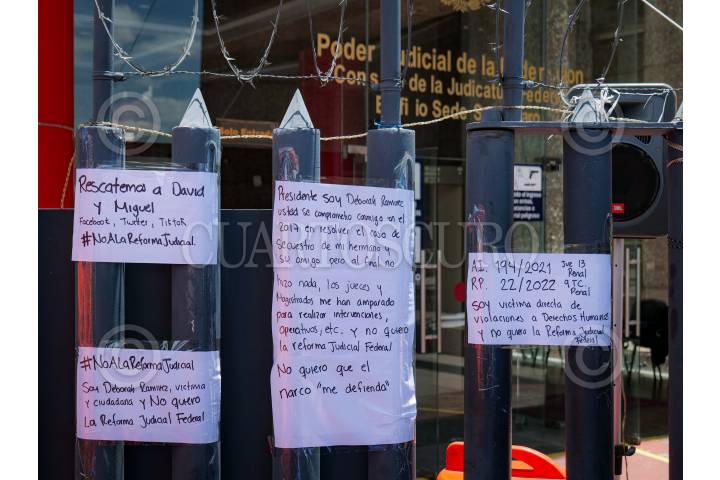 Poder Judicial de la Federación
Consejo de la Judicatura Federal
Edificio Sede S
Solo Entrada
Rescatemos a David
y Miguel
Facebook, Twitter, TikTok
#NoALaReformaJudicial.
#NoALaReformaJudicial
Soy Deborah Ramirez, victima
y ciudadana y No quiero
La Reforma Judicial Federal
Presidente soy Deborah Ramirez
usted se comprometio conmigo en el
2019 en resolver el caso de
secuestro de mi hermano y
su amigo pero al final no
hizo nada, los jueces y
Magistrados me han amparado
para realizar intervenciones,
operativos, etc. y no quiero
la reforma Judicial Federal
No quiero que el
narco "me defienda"
A.I. 194/2021 Jue 13
Penal
R.P. 22/2022 9 T.C.
Penal
Soy victima directa de
violaciones a Derechos Humanos
y no quiero la Reforma Judicial
Federal
JBL
CUARTOSCURO